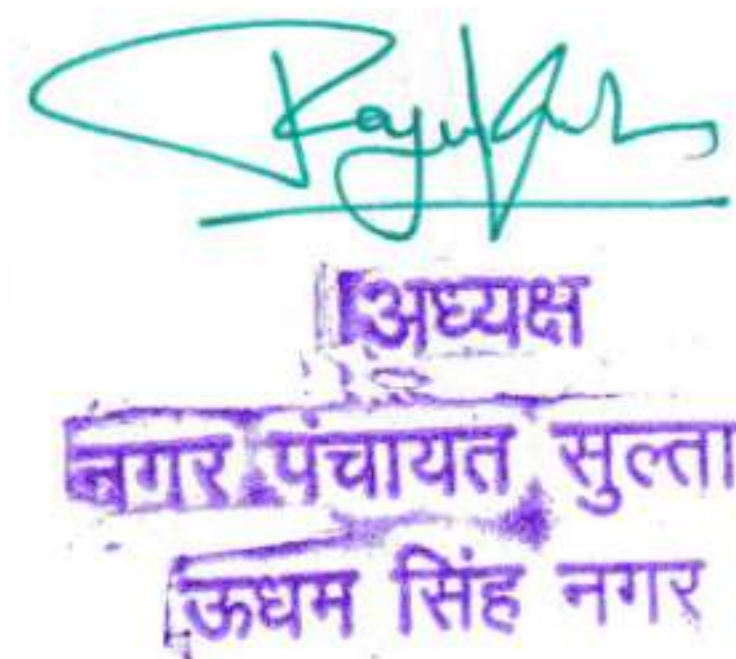 अध्यक्ष
नगर पंचायत सुल्ता
ऊधम सिंह नगर